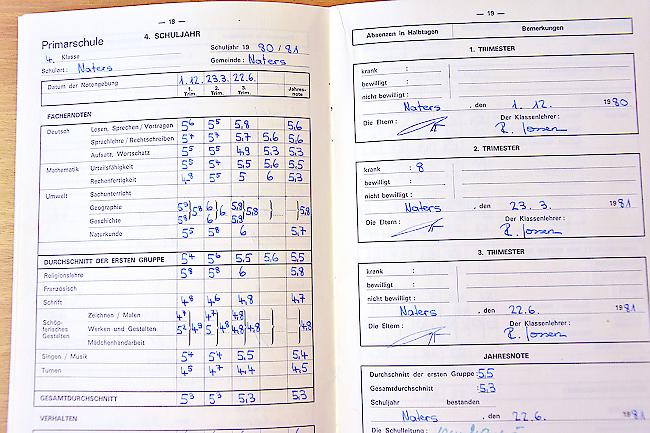 — 18 —
Primarschule
4. SCHULJAHR
Schuljahr 19 80/81
4. Klasse
Gemeinde: Naters
Schulort: Naters
Datum der Notengebung 1.12. 23.3. 22.6.
1. Trim. 2. Trim. 3. Trim. Jahresnote
FACHERNOTEN
Deutsch Lesen, Sprechen/Vortragen 5⁶ 5⁵ 5,8 5,6
Sprachlehre/Rechtschreiben 5,7 5,6 5,6
Aufsatz, Wortschatz 5⁵ 5⁵ 4,9 5,3 5,3
Mathematik Urteilsfähigkeit 5⁵ 5⁴ 5,5 5,6 5,6
Rechenfertigkeit 4,8 5⁵ 5 6 5,3
Umwelt Sachunterricht
Geographie 5⁹ 5⁸ 6 6 5,8 5,8
Geschichte 5⁸ 6 5,9
Naturkunde 5⁵ 5⁸ 6 5,7
DURCHSCHNITT DER ERSTEN GRUPPE 5⁴ 6 5,5 5,6 5,5
Religionslehre 5⁸ 5⁸ 6 5,8
Französisch
Schrift 4⁸ 4⁶ 4,8 4,7
Schöpferisches Gestalten
Zeichnen / Malen 4⁷ 4,8
Werken und Gestalten 5² 4⁹ 5 4⁸ 4,8 4,8 4,8
Mädchenhandarbeit
Singen / Musik 5⁴ 5⁴ 5,5 5,4
Turnen 4⁵ 4⁷ 4,4 4,5
GESAMTDURCHSCHNITT 5³ 5³ 5,3 5,3
VERHALTEN
— 19 —
Absenzen in Halbtagen Bemerkungen
1. TRIMESTER
krank :
bewilligt :
nicht bewilligt :
Naters , den 1. 12. 1980
Die Eltern: Der Klassenlehrer:
R. Jossen
2. TRIMESTER
krank : 8
bewilligt :
nicht bewilligt :
Naters , den 23. 3. 1981
Die Eltern: Der Klassenlehrer:
R. Jossen
3. TRIMESTER
krank :
bewilligt :
nicht bewilligt :
Naters , den 22.6. 1981
Die Eltern: Der Klassenlehrer:
R. Jossen
JAHRESNOTE
Durchschnitt der ersten Gruppe: 5.5
Gesamtdurchschnitt: 5.3
Schuljahr bestanden
Naters , den 22.6. 1981
Die Schulleitung: